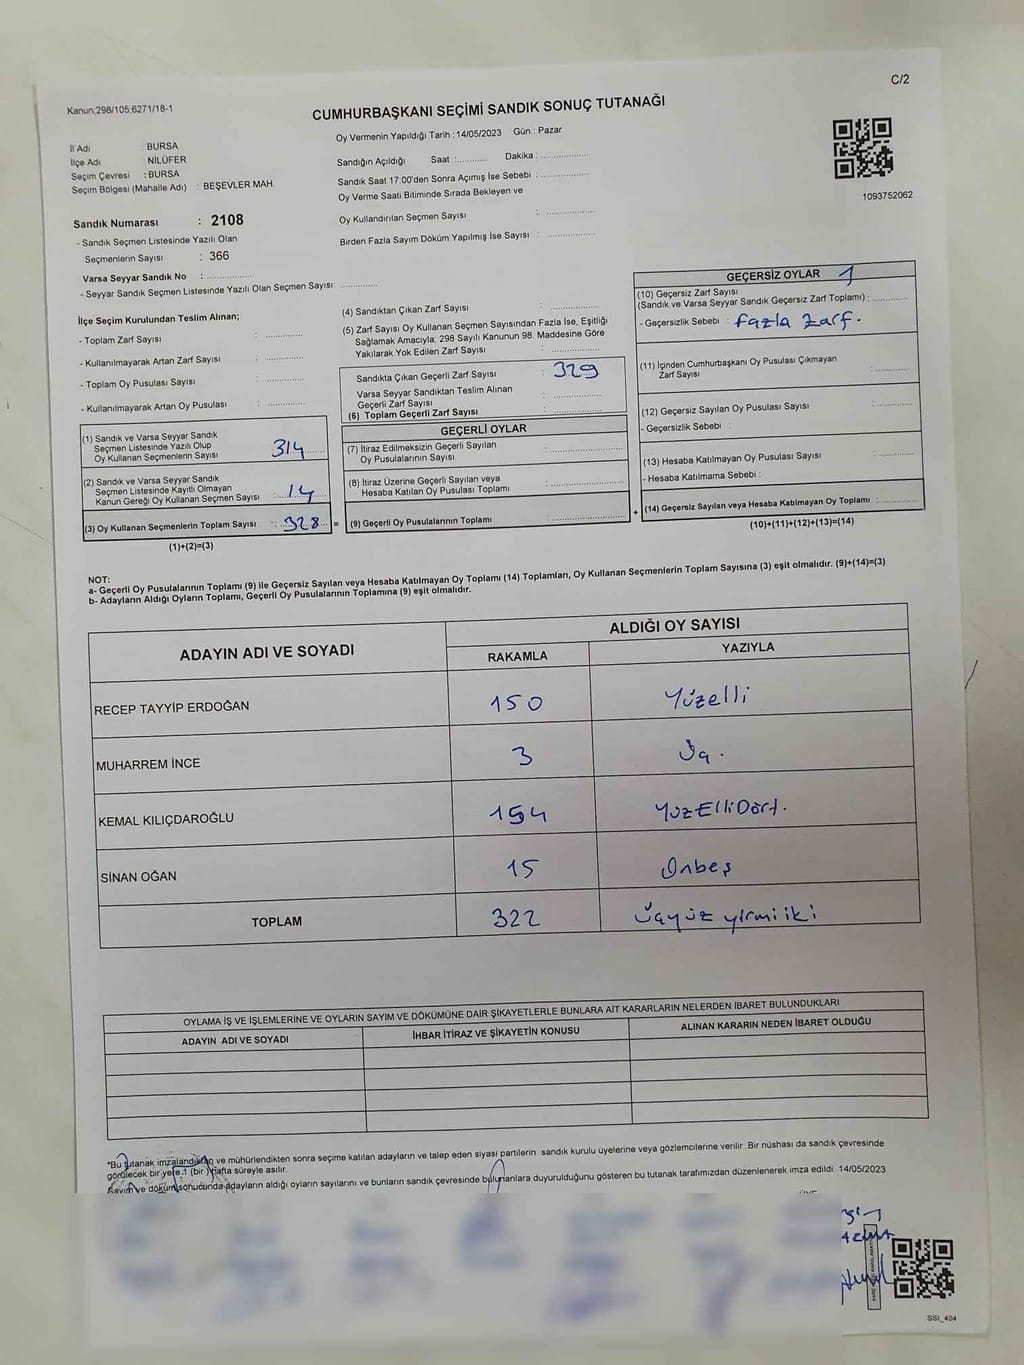 C/2
Kanun;298/105;6271/18-1
CUMHURBAŞKANI SEÇİMİ SANDIK SONUÇ TUTANAĞI
İl Adı BURSA
İlçe Adı NİLÜFER
Seçim Çevresi : BURSA
Seçim Bölgesi (Mahalle Adı) : BEŞEVLER MAH.
Sandık Numarası : 2108
- Sandık Seçmen Listesinde Yazılı Olan
Seçmenlerin Sayısı : 366
Varsa Seyyar Sandık No : ..............
- Seyyar Sandık Seçmen Listesinde Yazılı Olan Seçmen Sayısı: ............
Oy Vermenin Yapıldığı Tarih : 14/05/2023 Gün : Pazar
Sandığın Açıldığı Saat :.......... Dakika : ..............
Sandık Saat 17:00'den Sonra Açımış İse Sebebi : ..............
Oy Verme Saati Bitiminde Sırada Bekleyen ve
Oy Kullandırılan Seçmen Sayısı : ..............
Birden Fazla Sayım Döküm Yapılmış İse Sayısı : ..............
1093752062
İlçe Seçim Kurulundan Teslim Alınan;
- Toplam Zarf Sayısı : ............
- Kullanılmayarak Artan Zarf Sayısı : ............
- Toplam Oy Pusulası Sayısı : ............
- Kullanılmayarak Artan Oy Pusulası : ............
(1) Sandık ve Varsa Seyyar Sandık
Seçmen Listesinde Yazılı Olup
Oy Kullanan Seçmenlerin Sayısı 314
(2) Sandık ve Varsa Seyyar Sandık
Seçmen Listesinde Kayıtlı Olmayan
Kanun Gereği Oy Kullanan Seçmen Sayısı : 14
(3) Oy Kullanan Seçmenlerin Toplam Sayısı : 328 =
(1)+(2)=(3)
(4) Sandıktan Çıkan Zarf Sayısı : ............
(5) Zarf Sayısı Oy Kullanan Seçmen Sayısından Fazla İse, Eşitliği
Sağlamak Amacıyla; 298 Sayılı Kanunun 98. Maddesine Göre
Yakılarak Yok Edilen Zarf Sayısı : ............
Sandıkta Çıkan Geçerli Zarf Sayısı : 329
Varsa Seyyar Sandıktan Teslim Alınan
Geçerli Zarf Sayısı : ............
(6) Toplam Geçerli Zarf Sayısı : ............
GEÇERLİ OYLAR
(7) İtiraz Edilmeksizin Geçerli Sayılan
Oy Pusulalarının Sayısı : ............
(8) İtiraz Üzerine Geçerli Sayılan veya
Hesaba Katılan Oy Pusulası Toplamı : ............
(9) Geçerli Oy Pusulalarının Toplamı : ............ +
GEÇERSİZ OYLAR 1
(10) Geçersiz Zarf Sayısı
(Sandık ve Varsa Seyyar Sandık Geçersiz Zarf Toplamı) : ............
- Geçersizlik Sebebi : fazla zarf.
(11) İçinden Cumhurbaşkanı Oy Pusulası Çıkmayan
Zarf Sayısı : ............
(12) Geçersiz Sayılan Oy Pusulası Sayısı : ............
- Geçersizlik Sebebi :
(13) Hesaba Katılmayan Oy Pusulası Sayısı : ............
- Hesaba Katılmama Sebebi :
(14) Geçersiz Sayılan veya Hesaba Katılmayan Oy Toplamı : ............
(10)+(11)+(12)+(13)=(14)
NOT:
a- Geçerli Oy Pusulalarının Toplamı (9) ile Geçersiz Sayılan veya Hesaba Katılmayan Oy Toplamı (14) Toplamları, Oy Kullanan Seçmenlerin Toplam Sayısına (3) eşit olmalıdır. (9)+(14)=(3)
b- Adayların Aldığı Oyların Toplamı, Geçerli Oy Pusulalarının Toplamına (9) eşit olmalıdır.
ADAYIN ADI VE SOYADI ALDIĞI OY SAYISI
RAKAMLA YAZIYLA
RECEP TAYYİP ERDOĞAN 150 Yüzelli
MUHARREM İNCE 3 Üç.
KEMAL KILIÇDAROĞLU 154 YüzElliDört.
SİNAN OĞAN 15 Onbeş
TOPLAM 322 Üçyüz yirmi iki
OYLAMA İŞ VE İŞLEMLERİNE VE OYLARIN SAYIM VE DÖKÜMÜNE DAİR ŞİKAYETLERLE BUNLARA AİT KARARLARIN NELERDEN İBARET BULUNDUKLARI
ADAYIN ADI VE SOYADI İHBAR İTİRAZ VE ŞİKAYETİN KONUSU ALINAN KARARIN NEDEN İBARET OLDUĞU
*Bu tutanak imzalandıktan ve mühürlendikten sonra seçime katılan adayların ve talep eden siyasi partilerin sandık kurulu üyelerine veya gözlemcilerine verilir. Bir nüshası da sandık çevresinde
görülecek bir yere 1 (bir) hafta süreyle asılır.
Sayım ve döküm sonucunda adayların aldığı oyların sayılarını ve bunların sandık çevresinde bulunanlara duyurulduğunu gösteren bu tutanak tarafımızdan düzenlenerek imza edildi. 14/05/2023
SSI_404